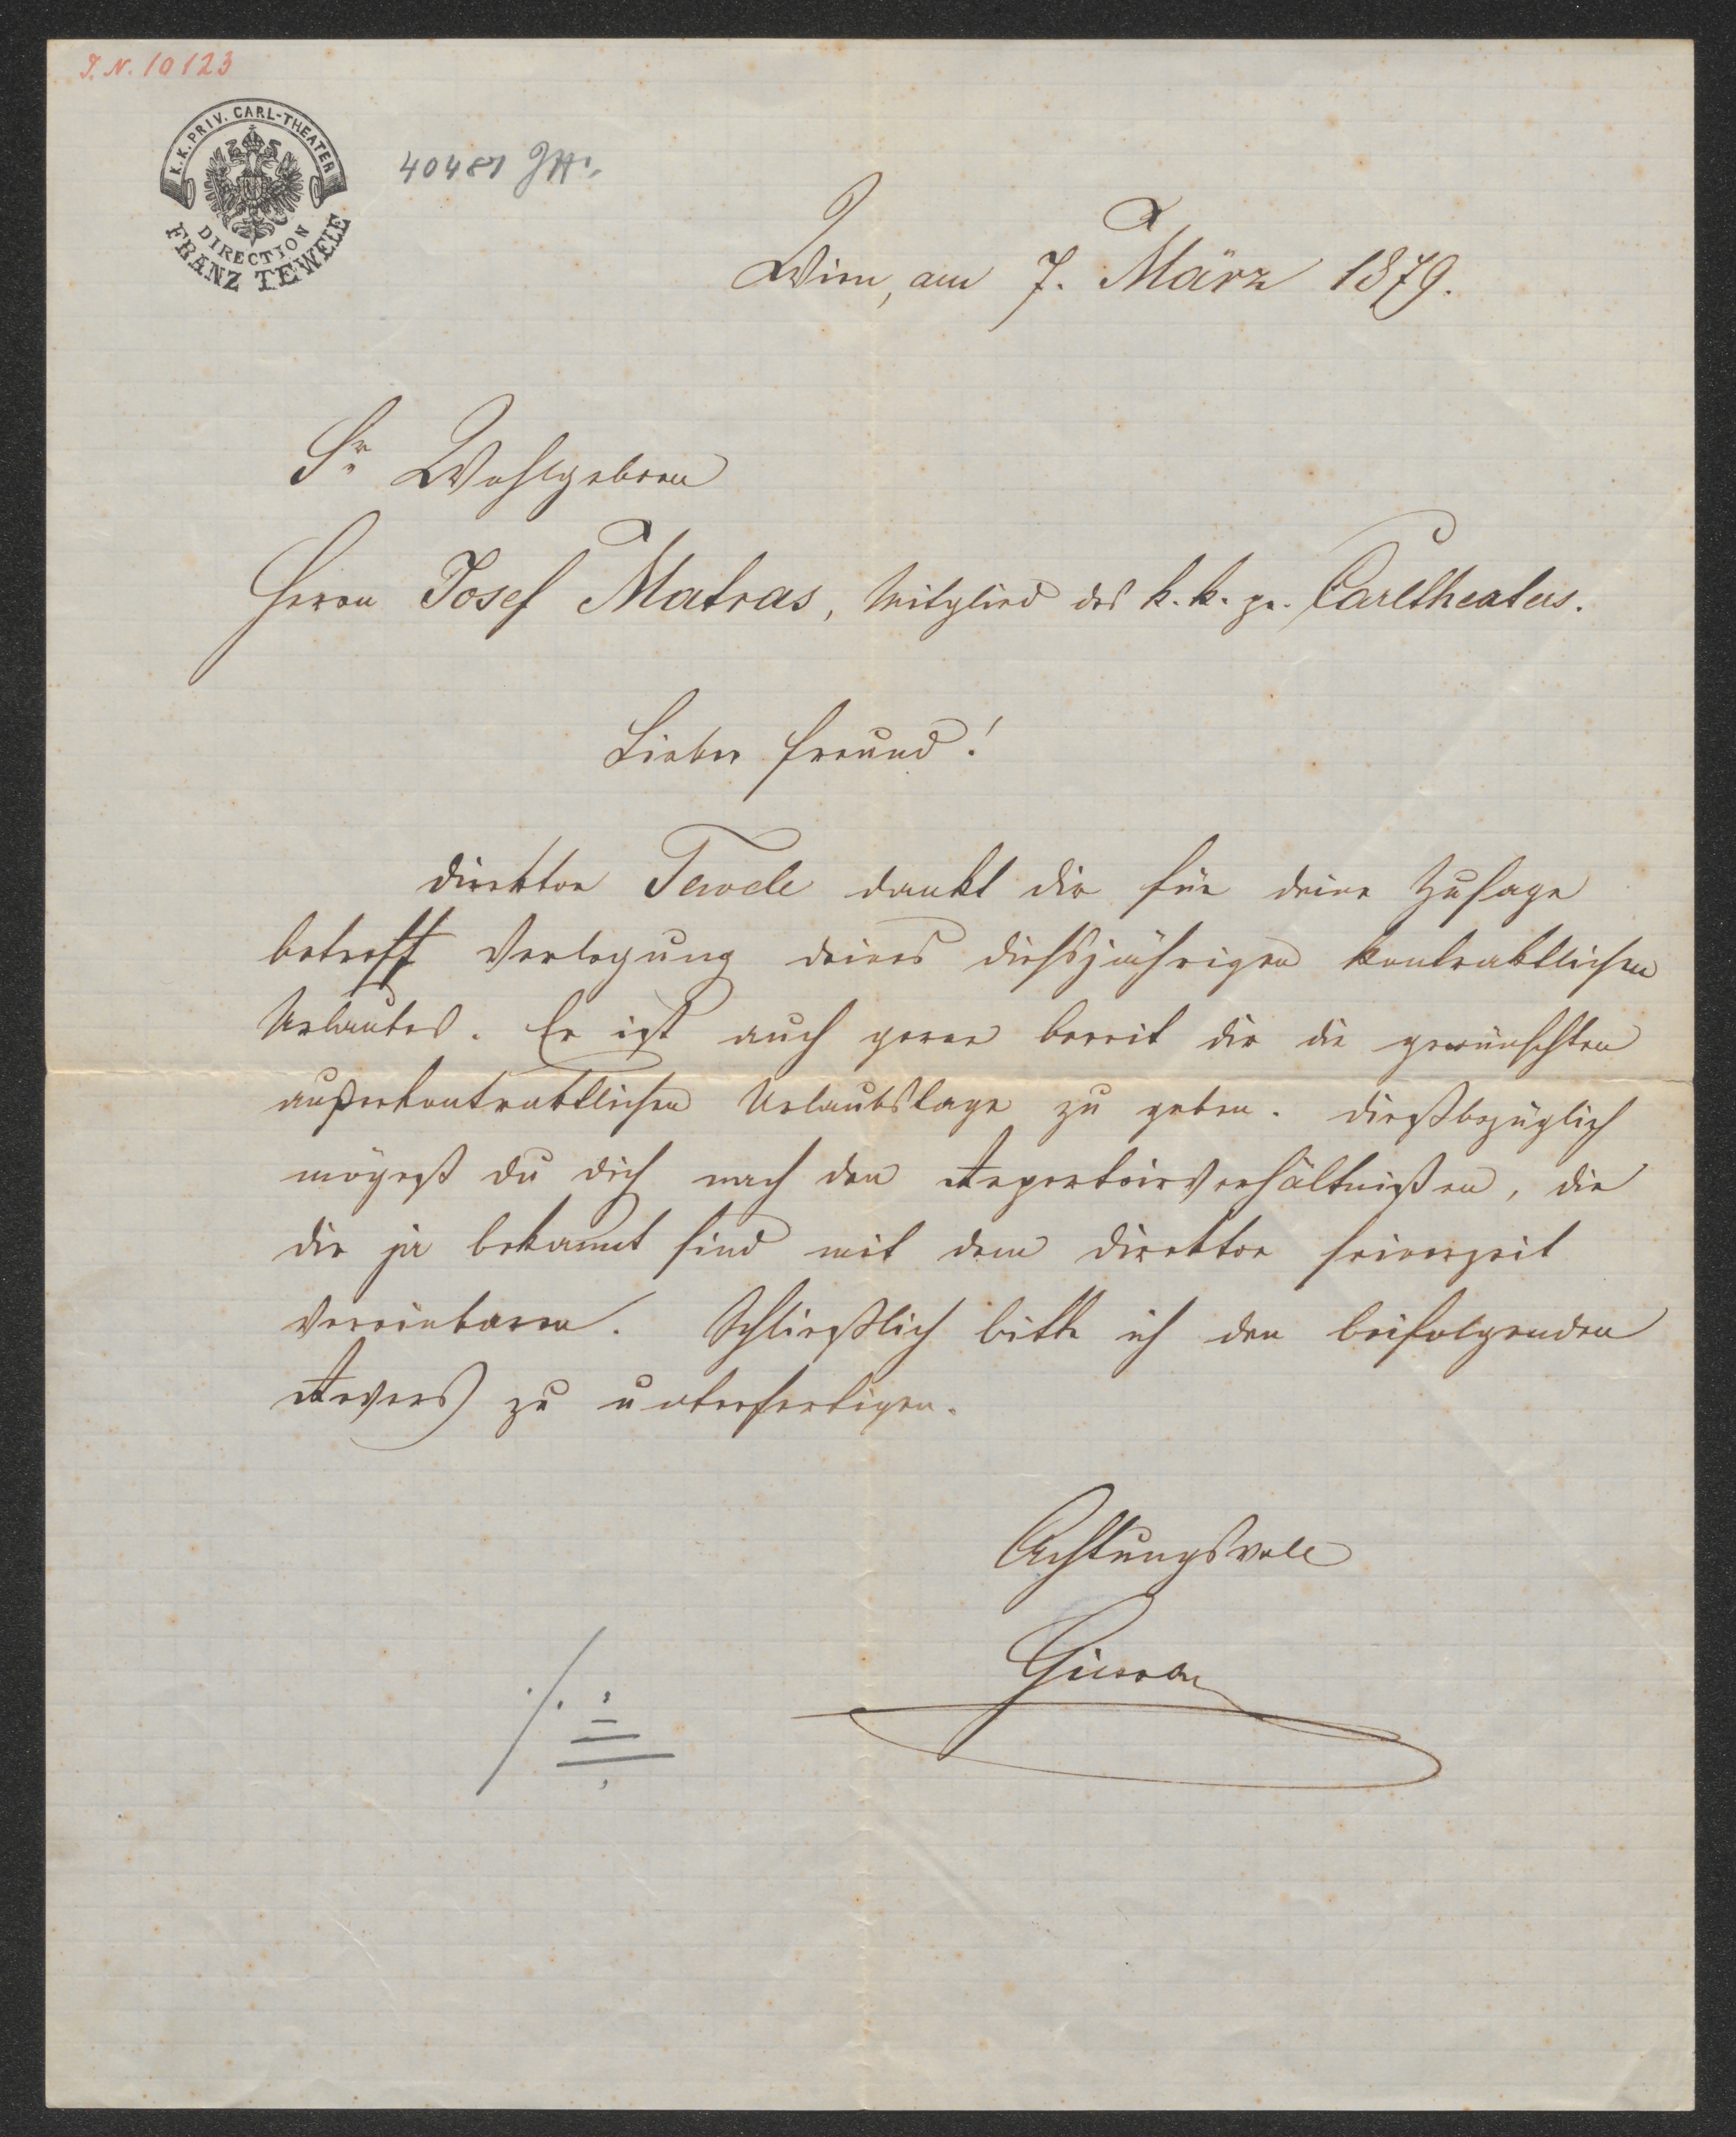 J. N. 10123
K. K. PRIV. CARL-THEATER
DIRECTION
FRANZ TEWELE
40481 JH.
Wien, am 7. März 1879.
Sr. Wohlgeboren
Herrn Josef Matras, Mitglied des k. k. pr. Carltheaters.
Lieber Freund!
Direktor Tewele dankt dir für deine Zusage
betreff Verlegung deines dießjährigen kontraktlichen
Urlaubes. Er ist auch gerne bereit dir die gewünschten
außerkontraktlichen Urlaubstage zu geben. Dießbezüglich
mögest du dich nach den Repertoirverhältnißen, die
dir ja bekannt sind mit dem Direktor seinerzeit
vereinbaren. Schließlich bitte ich den beifolgenden
Revers zu unterfertigen.
Achtungsvoll
./.